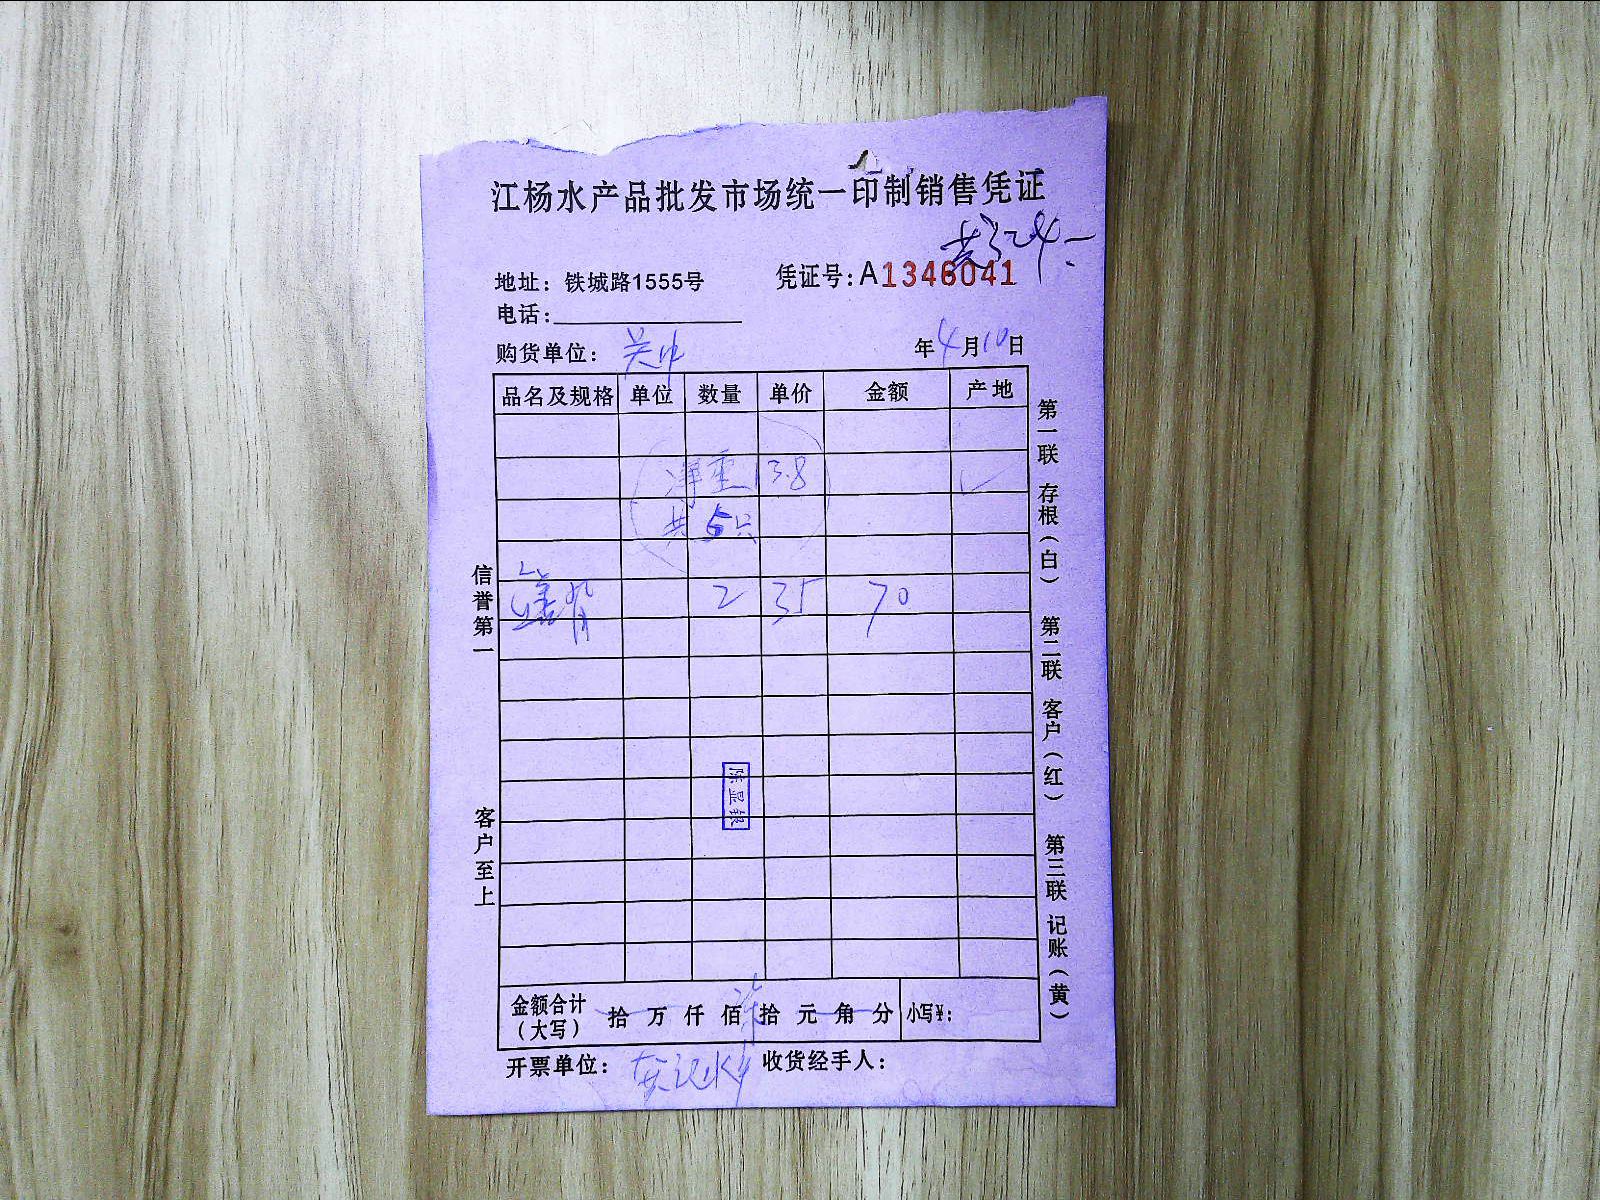 江杨水产品批发市场统一印制销售凭证
共324.-
地址：铁城路1555号 凭证号：A1346041
电话：
购货单位： 年4月10日
品名及规格 单位 数量 单价 金额 产地
净重13.8
共5只
鳝背 2 35 70
金额合计（大写） 拾万仟佰柒拾元角分 小写¥：
开票单位： 收货经手人：
信誉第一 客户至上
第一联 存根（白） 第二联 客户（红） 第三联 记账（黄）